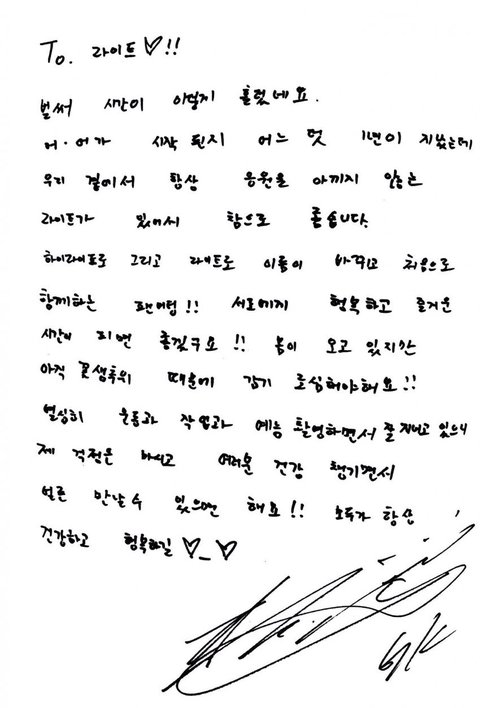 To. 라이트♡!!
벌써 시간이 이렇게 흘렀네요.
어·어가 시작 된지 어느 덧 1년이 지났는데
우리 곁에서 항상 응원을 아끼지 않는
라이트가 있어서 참으로 좋습니다.
하이라이트로 그리고 라이트로 이름이 바뀌고 처음으로
함께하는 팬미팅!! 서로에게 행복하고 즐거운
시간이 되면 좋겠구요!! 봄이 오고 있지만
아직 꽃샘추위 때문에 감기 조심해야해요!!
열심히 운동과 작업과 예능 촬영하면서 잘 지내고 있으니
제 걱정은 마시고 여러분 건강 챙기면서
얼른 만날 수 있으면 해요!! 모두가 항상
건강하고 행복하길 ♡_♡